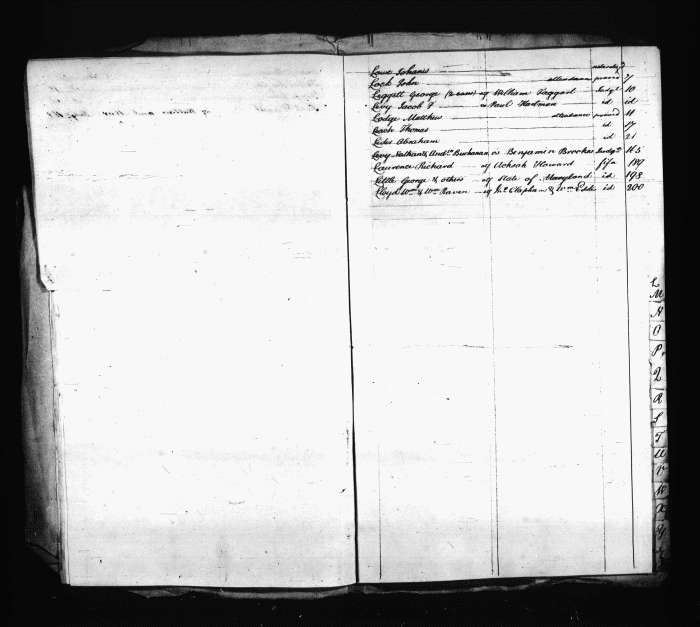 Lowe Johannes
Lock John attendance proved 7
Leggett George (2 cases) of William Taggart Judgt 10
Levy Jacob F Paul Hartman id id
Lodge Matthew attendance proved 11
Leach Thomas id 17
Abraham id 21
Levy Nathan & Andw Buchanan vs Benjamin Brookes Judgt 115
Laurence Richard of Achsah Howard fifa 189
Little George & others of State of Maryland id 193
Lloyd Wm & Wm Raven of Jno Clapham & Wm Eddis id 200
L
M
N
O
P
Q
R
S
T
U
V
W
X
Y